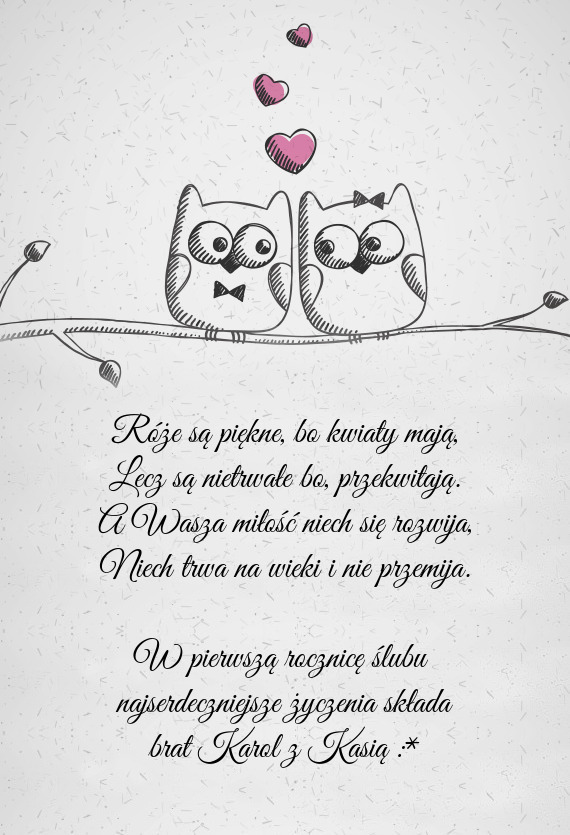 Róże są piękne, bo kwiaty mają,
Lecz są nietrwałe bo, przekwitają.
A Wasza miłość niech się rozwija,
Niech trwa na wieki i nie przemija.
W pierwszą rocznicę ślubu
najserdeczniejsze życzenia składa
brat Karol z Kasią :*